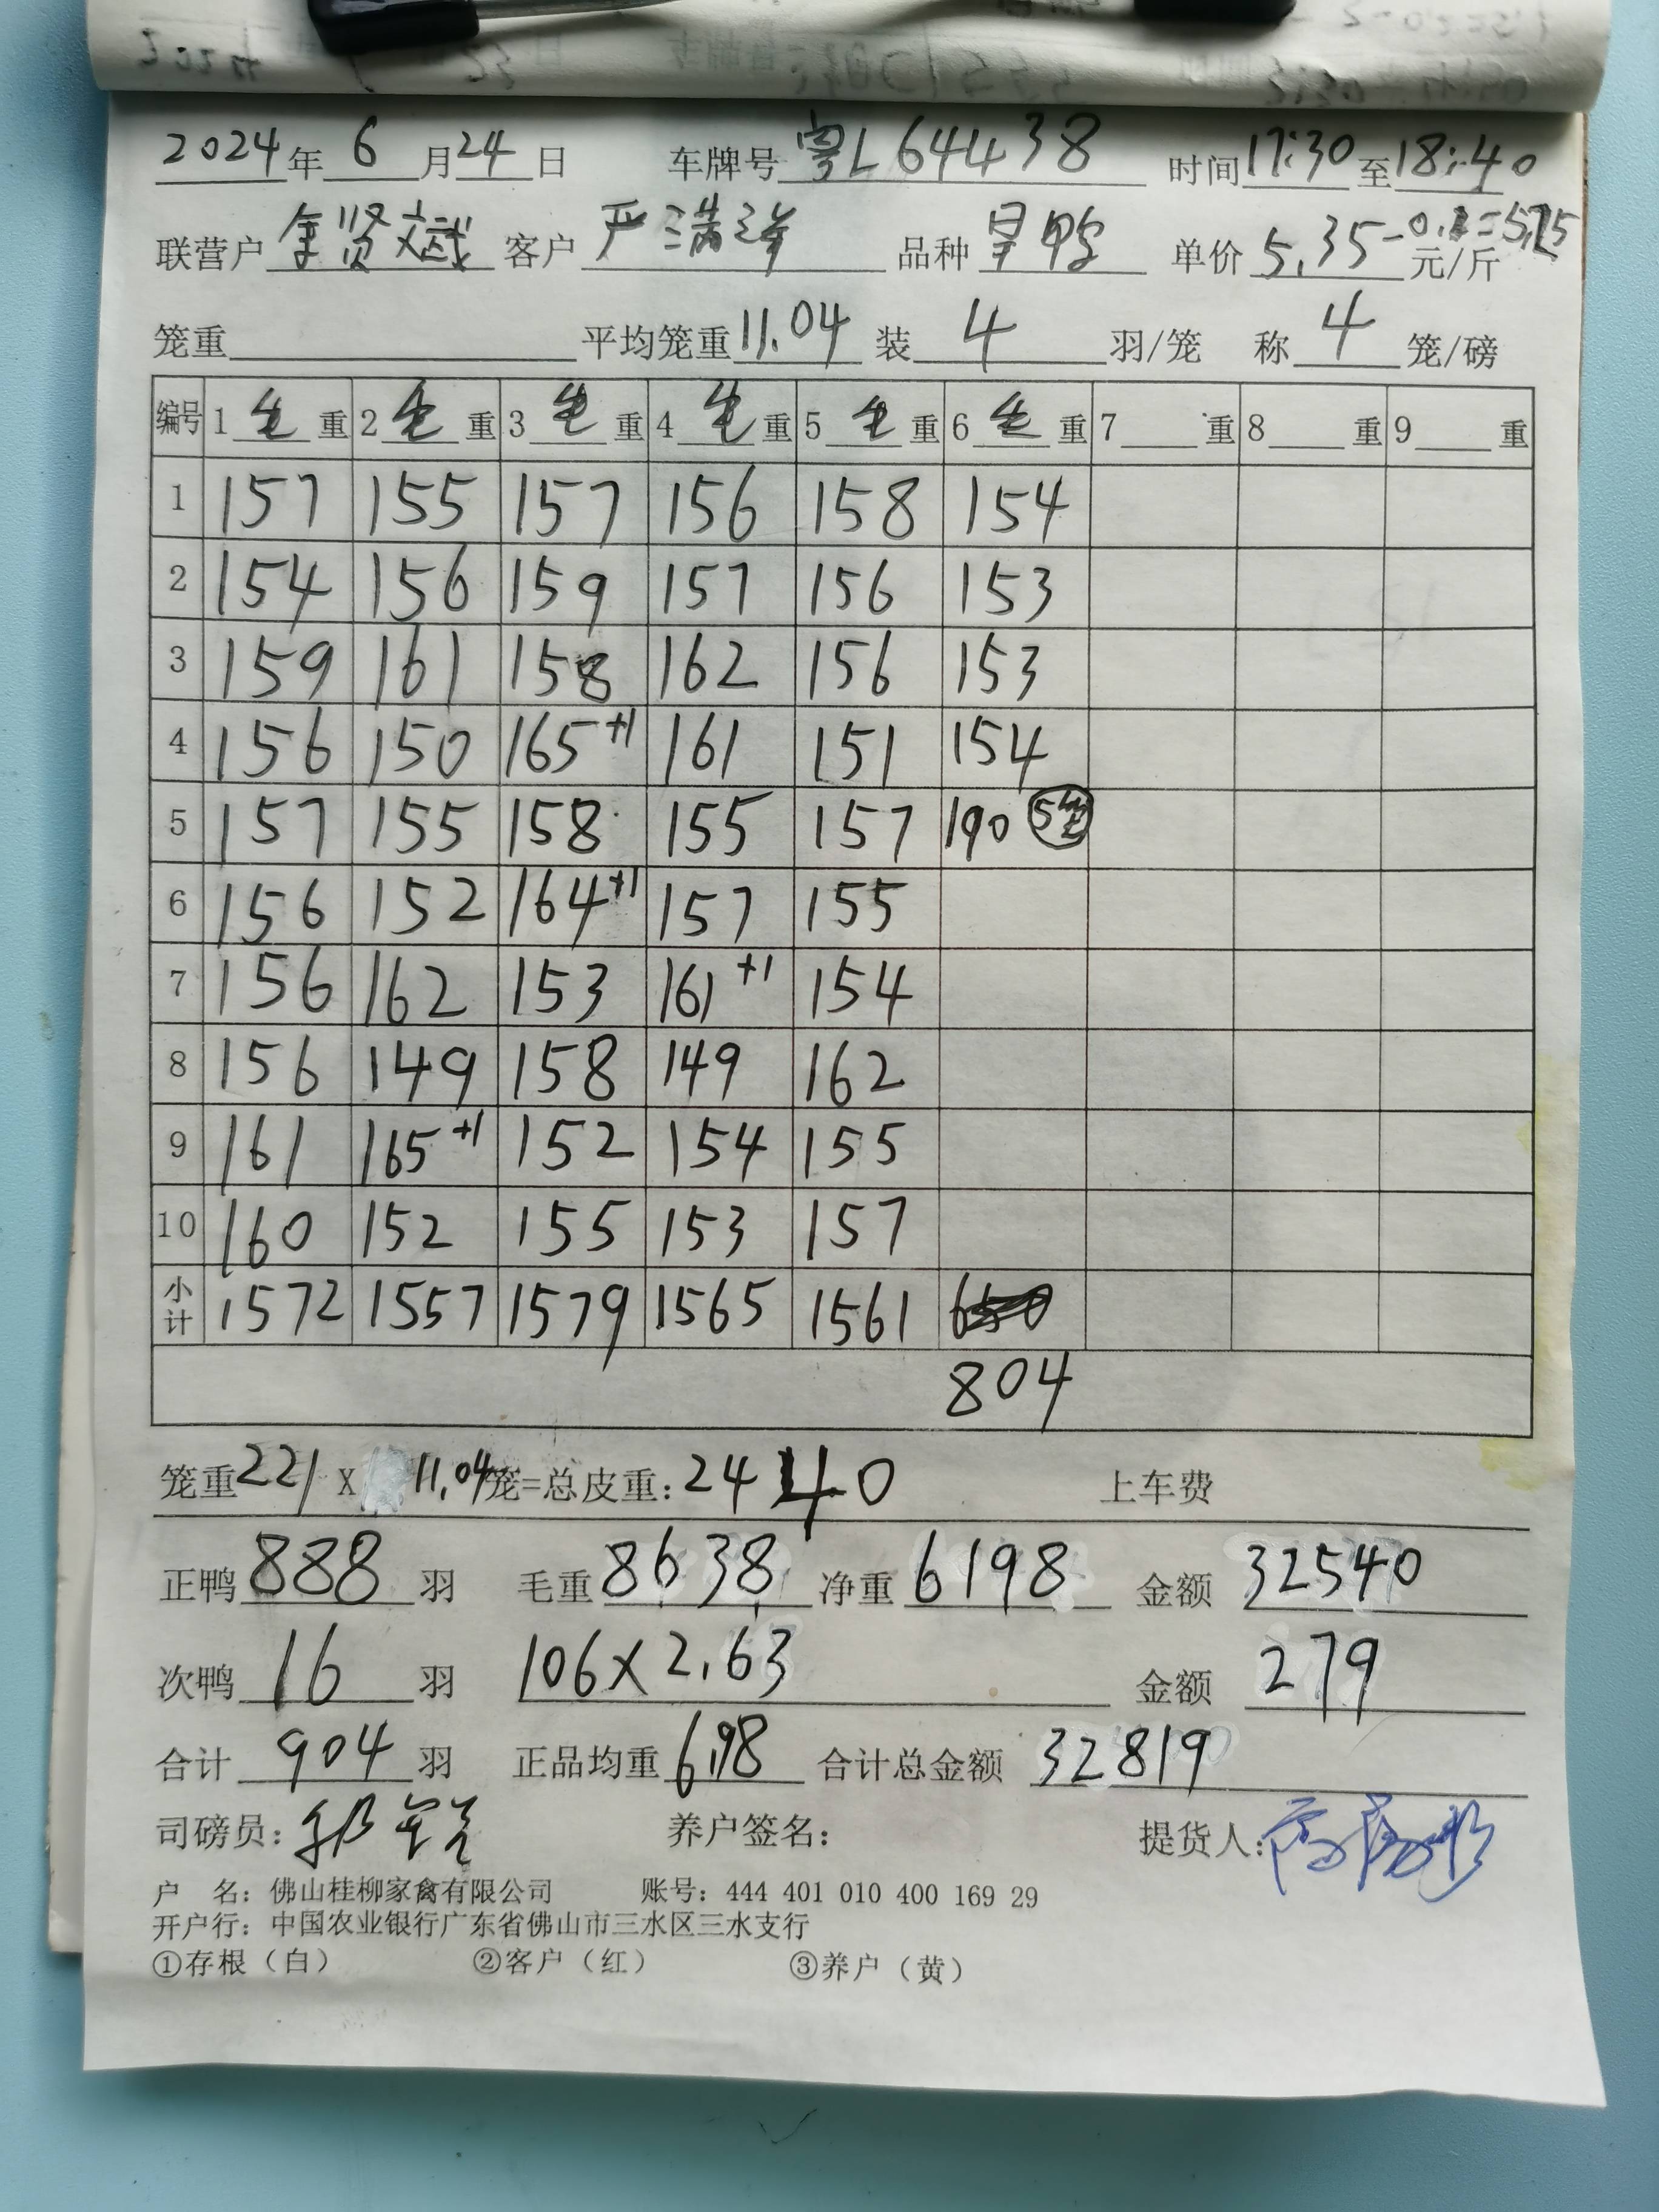 2024年 6 月 24 日 车牌号 粤L64438 时间 17:30 至 18:40
联营户 贤斌 客户 严满洋 品种 鸭 单价 5.35 元/斤
笼重 平均笼重 11.04 装 4 羽/笼 称 4 笼/磅
编号 1 毛 重 2 毛 重 3 毛 重 4 毛 重 5 毛 重 6 毛 重 7 重 8 重 9 重
1 157 155 157 156 158 154
2 154 156 159 157 156 153
3 159 161 158 162 156 153
4 156 150 165+1 161 151 154
5 157 155 158 155 157 190 5笼
6 156 152 164+1 157 155
7 156 162 153 161+1 154
8 156 149 158 149 162
9 161 165+1 152 154 155
10 160 152 155 153 157
小计 1572 1557 1579 1565 1561
804
笼重 221 X 11.04 笼=总皮重: 2440 上车费
正鸭 888 羽 毛重 8638 净重 6198 金额 32540
次鸭 16 羽 106×2.63 金额 279
合计 904 羽 正品均重 6.98 合计总金额 32819
司磅员: 养户签名: 提货人:
户 名: 佛山桂柳家禽有限公司 账号: 444 401 010 400 169 29
开户行: 中国农业银行广东省佛山市三水区三水支行
①存根（白） ②客户（红） ③养户（黄）